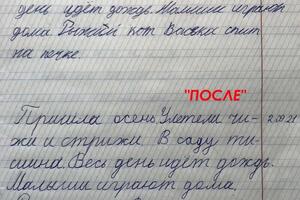 день идёт дождь. Малыши играют
дома. Рыжий кот Васька спит
на печке.
"ПОСЛЕ"
Пришла осень. Улетели чи-
жи и стрижи. В саду ти-
шина. Весь день идёт дождь.
Малыши играют дома.